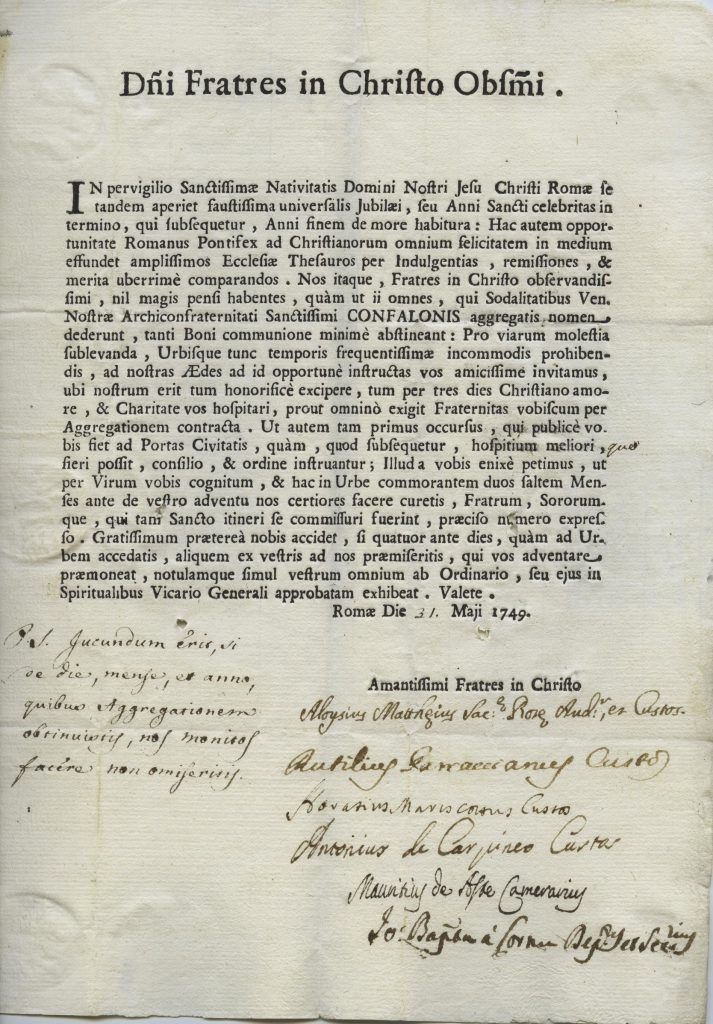 Dñi Fratres in Chriſto Obſm̃i .
IN pervigilio Sanctiſſimæ Nativitatis Domini Noſtri Jeſu Chriſti Romæ ſe
tandem aperiet fauſtiſſima univerſalis Jubilæi, ſeu Anni Sancti celebritas in
termino, qui ſubſequetur , Anni finem de more habitura : Hac autem oppor-
tunitate Romanus Pontifex ad Chriſtianorum omnium felicitatem in medium
effundet ampliſſimos Eccleſiæ Theſauros per Indulgentias , remiſſiones , &
merita uberrimè comparandos . Nos itaque , Fratres in Chriſto obſervandiſ-
ſimi , nil magis penſi habentes , quàm ut ii omnes , qui Sodalitatibus Ven.
Noſtræ Archiconfraternitati Sanctiſſimi CONFALONIS aggregatis nomen
dederunt , tanti Boni communione minimè abſtineant : Pro viarum moleſtia
ſublevanda , Urbiſque tunc temporis frequentiſſimæ incommodis prohiben-
dis , ad noſtras Ædes ad id opportunè inſtructas vos amiciſſime invitamus,
ubi noſtrum erit tum honorificè excipere , tum per tres dies Chriſtiano amo-
re , & Charitate vos hoſpitari, prout omninò exigit Fraternitas vobiſcum per
Aggregationem contracta . Ut autem tam primus occurſus , qui publicè vo-
bis fiet ad Portas Civitatis , quàm , quod ſubſequetur , hoſpitium meliori , quo
fieri poſſit , conſilio , & ordine inſtruantur ; Illud a vobis enixè petimus , ut
per Virum vobis cognitum , & hac in Urbe commorantem duos ſaltem Men-
ſes ante de veſtro adventu nos certiores facere curetis , Fratrum , Sororum-
que , qui tam Sancto itineri ſe commiſſuri fuerint , præciſo numero expreſ-
ſo . Gratiſſimum prætereà nobis accidet , ſi quatuor ante dies , quàm ad Ur-
bem accedatis , aliquem ex veſtris ad nos præmiſeritis , qui vos adventare
præmoneat , notulamque ſimul veſtrum omnium ab Ordinario , ſeu ejus in
Spiritualibus Vicario Generali approbatam exhibeat . Valete .
Romæ Die 31. Maji 1749.
P. S. Jucundum erit, si
de die, mense, et anno,
quibus Aggregationem
obtinuistis, nos monitos
facere non omiseritis.
Amantiſſimi Fratres in Chriſto
Aloysius Mattheius Sac. Rotę Aud.r, et Custos
Rutilius Custos
Horatius Custos
Antonius de Carpineo Custos
Mauritius de Aste Camerarius
Jo. Bapta a